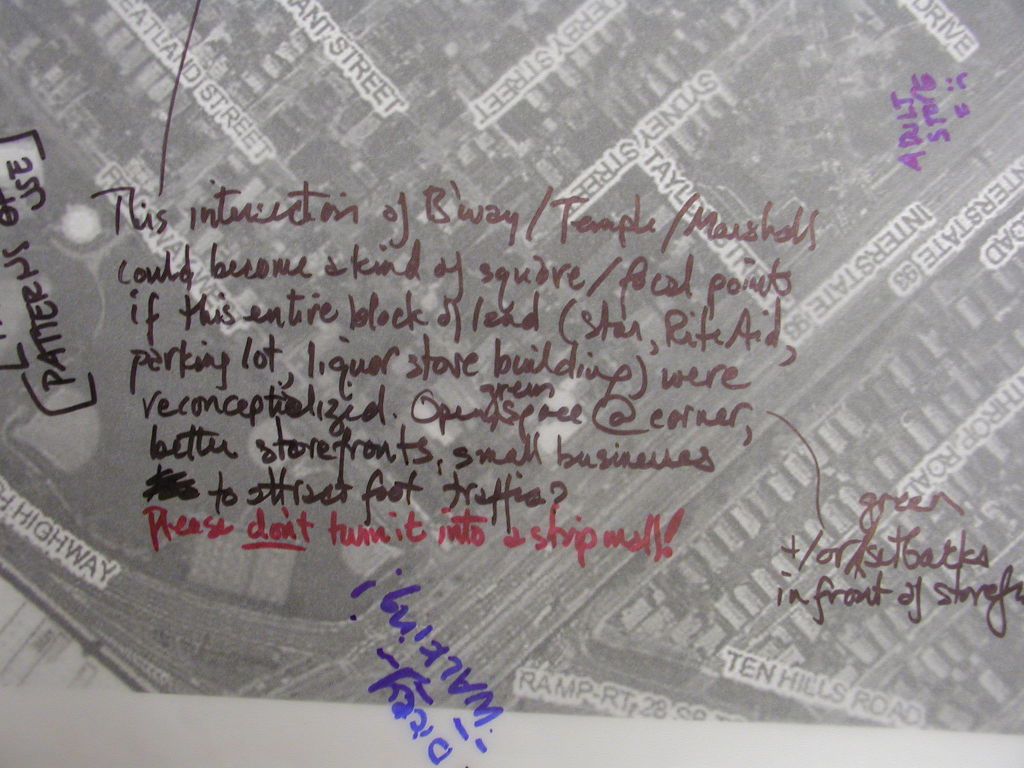 DRIVE
STREET
ERBY STREET
SYDNEY STREET
STREET
TAYL
INTERSTATE 93
INTERSTATE 93
ROAD
ADULT
STORE
PATTERNS OF
USE
This intersection of B'way/Temple/Marshall
could become a kind of square/focal points
if this entire block of land (Star, Rite Aid,
parking lot, liquor store building) were
reconceptialized. Open green space @ corner,
better storefronts, small businesses
to attract foot traffic?
Please don't turn it into a strip mall!
green
+/or setbacks
in front of storefr
HIGHWAY
Dicey
WALKING!
THROP ROAD
TEN HILLS ROAD
RAMP-RT 28 SB T